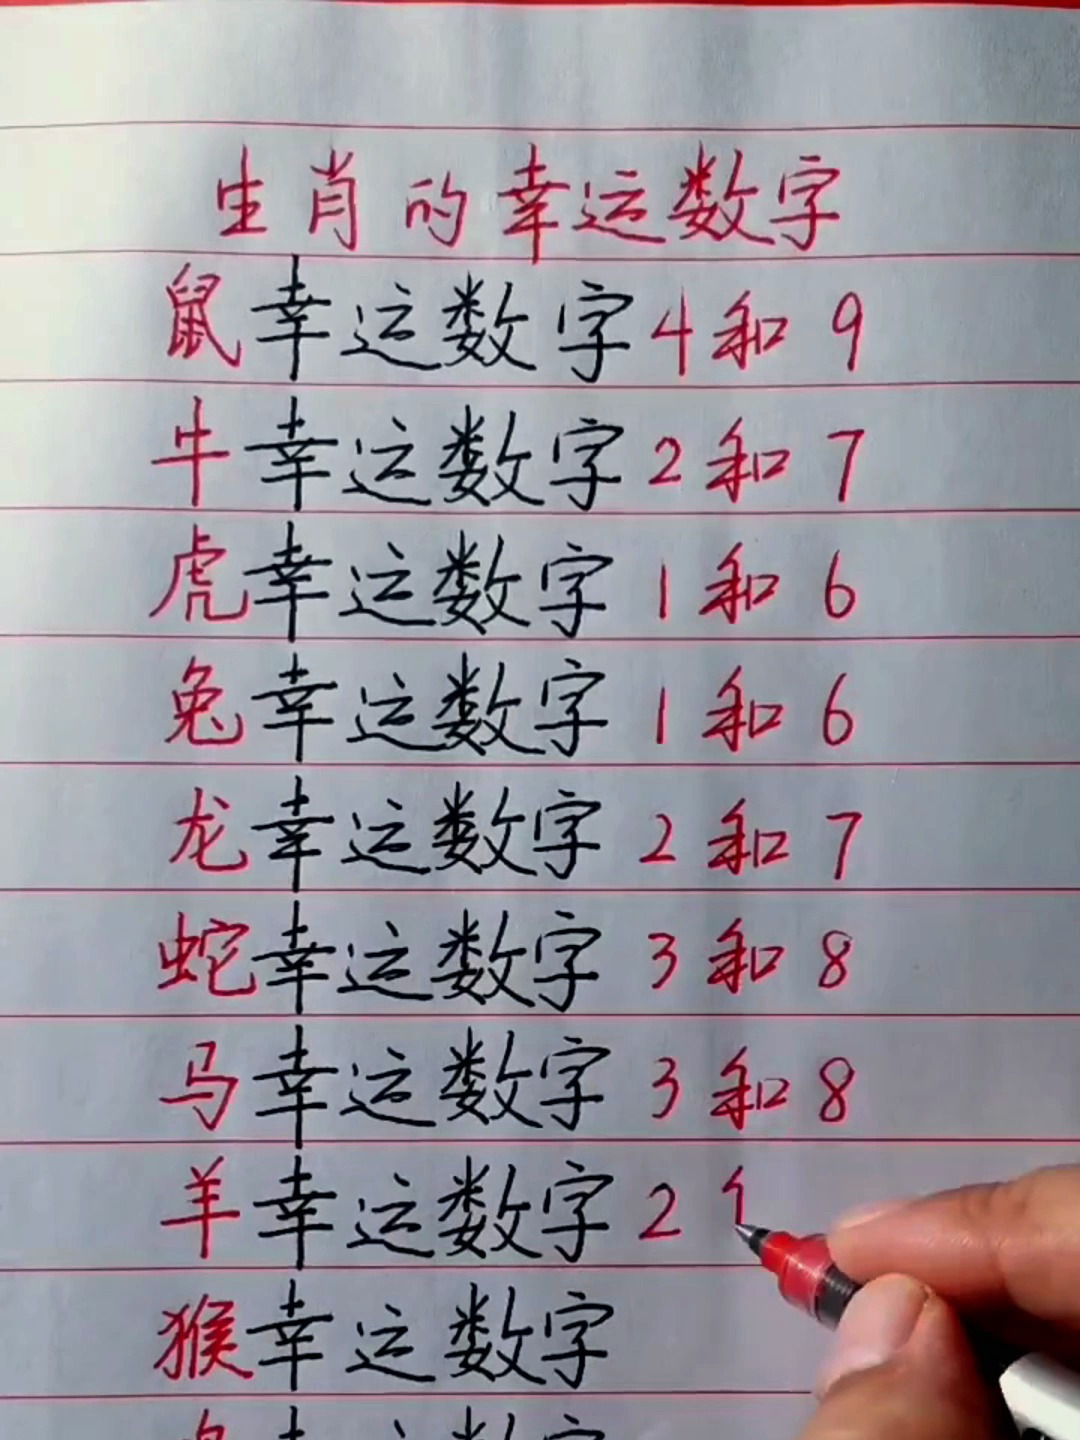 生肖的幸运数字
鼠幸运数字4和9
牛幸运数字2和7
虎幸运数字1和6
兔幸运数字1和6
龙幸运数字2和7
蛇幸运数字3和8
马幸运数字3和8
羊幸运数字2
猴幸运数字